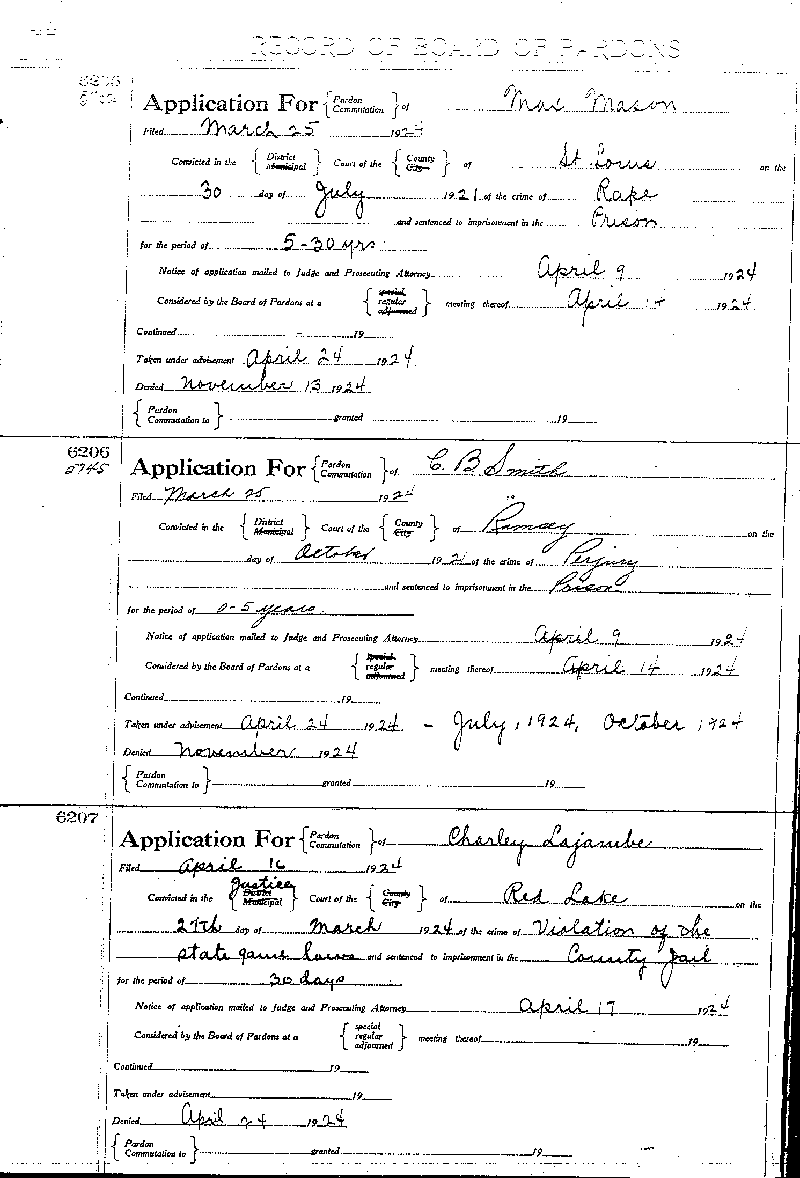 RECORD OF BOARD OF PARDONS
Application For { Pardon Commutation } of Max Mason
Filed March 25 1924
Convicted in the { District Municipal } Court of the { County City } of St Louis on the
30 day of July 1921 of the crime of Rape
and sentenced to imprisonment in the Prison
for the period of 5-30 yrs.
Notice of application mailed to Judge and Prosecuting Attorney April 9 1924
Considered by the Board of Pardons at a { special regular adjourned } meeting thereof April 14 1924
Continued - 19
Taken under advisement April 24 1924
Denied November 13 1924
{ Pardon Commutation to } granted 19
6206
5745
Application For { Pardon Commutation } of C. B Smith
Filed March 25 1924
Convicted in the { District Municipal } Court of the { County City } of Ramsey on the
day of October 1921 of the crime of Perjury
and sentenced to imprisonment in the Prison
for the period of 0-5 years.
Notice of application mailed to Judge and Prosecuting Attorney April 9 1924
Considered by the Board of Pardons at a { special regular adjourned } meeting thereof April 14 1924
Continued 19
Taken under advisement April 24 1924 - July, 1924, October 1924
Denied November 1924
{ Pardon Commutation to } granted 19
6207
Application For { Pardon Commutation } of Charley Lajambe
Filed April 16 1924
Justice
Convicted in the { District Municipal } Court of the { County City } of Red Lake on the
27th day of March 1924 of the crime of Violation of the
state game laws and sentenced to imprisonment in the County Jail
for the period of 30 days
Notice of application mailed to Judge and Prosecuting Attorney April 17 1924
Considered by the Board of Pardons at a { special regular adjourned } meeting thereof 19
Continued 19
Taken under advisement 19
Denied April 24 1924
{ Pardon Commutation to } granted 19